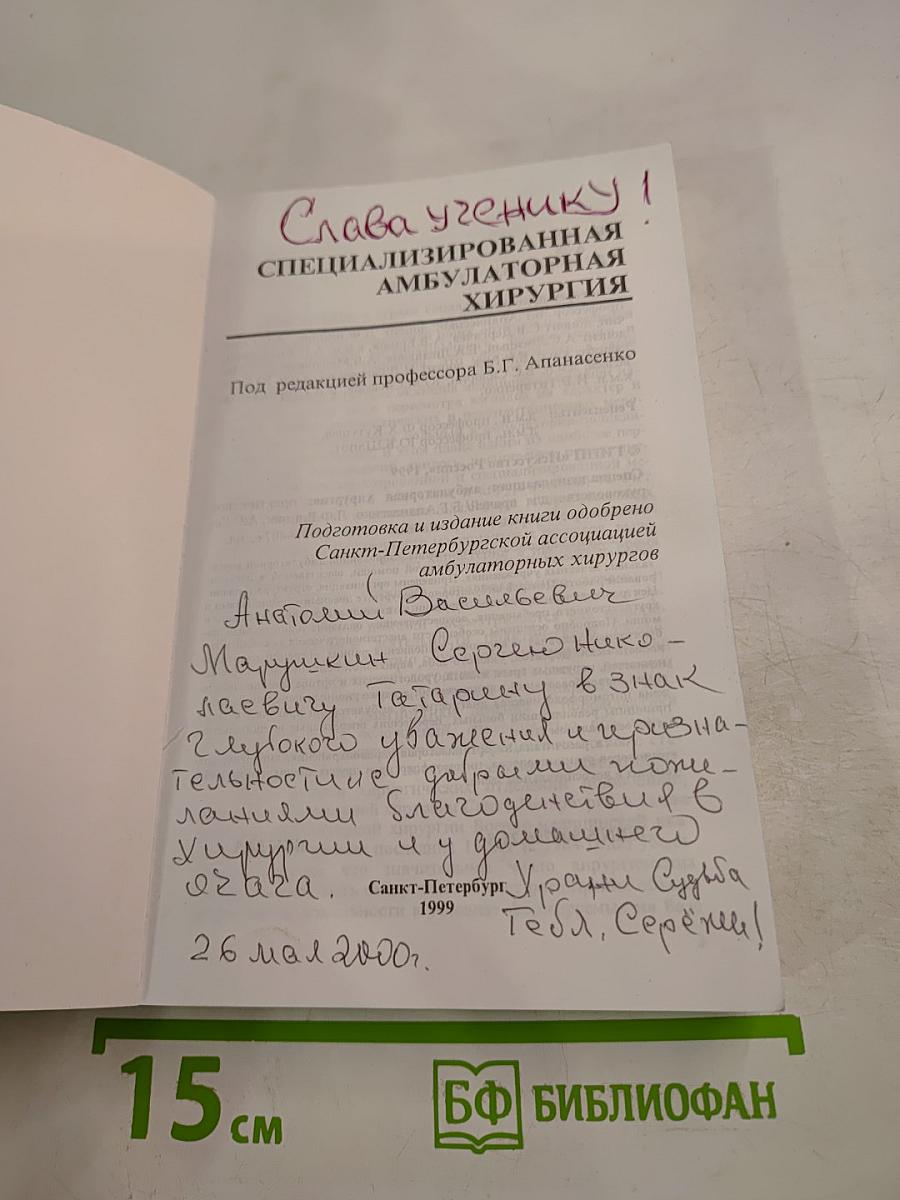 Слава ученику!
СПЕЦИАЛИЗИРОВАННАЯ
АМБУЛАТОРНАЯ
ХИРУРГИЯ
Под редакцией профессора Б.Г. Апанасенко
Подготовка и издание книги одобрено
Санкт-Петербургской ассоциацией
амбулаторных хирургов
Анатолий Васильевич
Марушкин Сергею Нико-
лаевичу Татарину в знак
глубокого уважения и призна-
тельности с добрыми поже-
ланиями благоденствия в
хирургии и у домашнего
очага.
Санкт-Петербург
1999
Храни Судьба
Тебя, Серёжа!
26 мая 2000г.
15 см
БФ БИБЛИОФАН